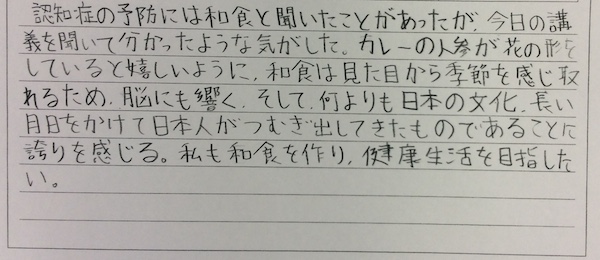 認知症の予防には和食と聞いたことがあったが、今日の講
義を聞いて分かったような気がした。カレーの人参が花の形を
していると嬉しいように、和食は見た目から季節を感じ取
れるため、脳にも響く。そして、何よりも日本の文化、長い
月日をかけて日本人がつむぎ出してきたものであることに
誇りを感じる。私も和食を作り、健康生活を目指した
い。